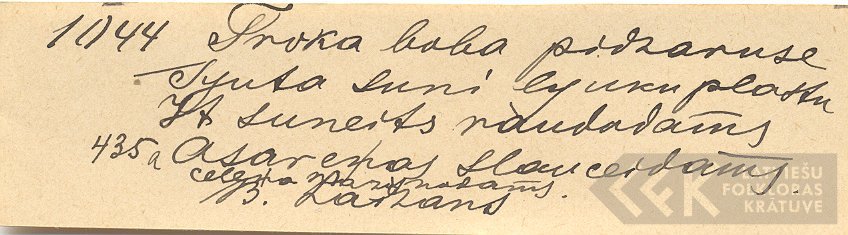 1044 Troka boba pidzaruse
Syuta suni lyuku plostu
It suneits raudodams
435a asarenas slauceidams.
celeņa mozgodams.
B. Laizans
LATVIEŠU
FOLKLORAS
KRĀTUVE